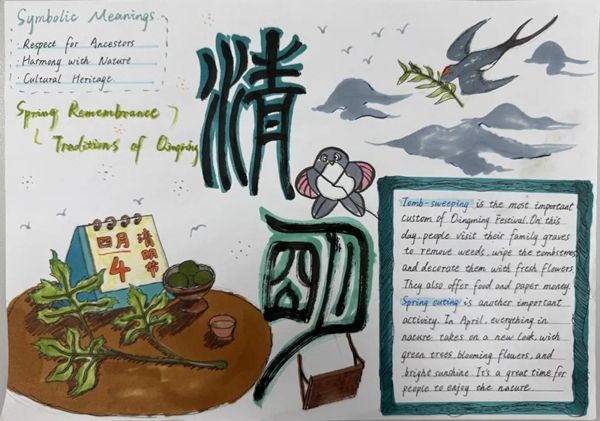 Symbolic Meanings
Respect for Ancestors
Harmony with Nature
Cultural Heritage
Spring Remembrance
Traditions of Qingming
清
明
四月
4
清明节
Tomb-sweeping is the most important
custom of Qingming Festival. On this
day, people visit their family graves
to remove weeds, wipe the tombstones,
and decorate them with fresh flowers.
They also offer food and paper money.
Spring outing is another important
activity. In April, everything in
nature takes on a new look, with
green trees, blooming flowers, and
bright sunshine. It's a great time for
people to enjoy the nature.